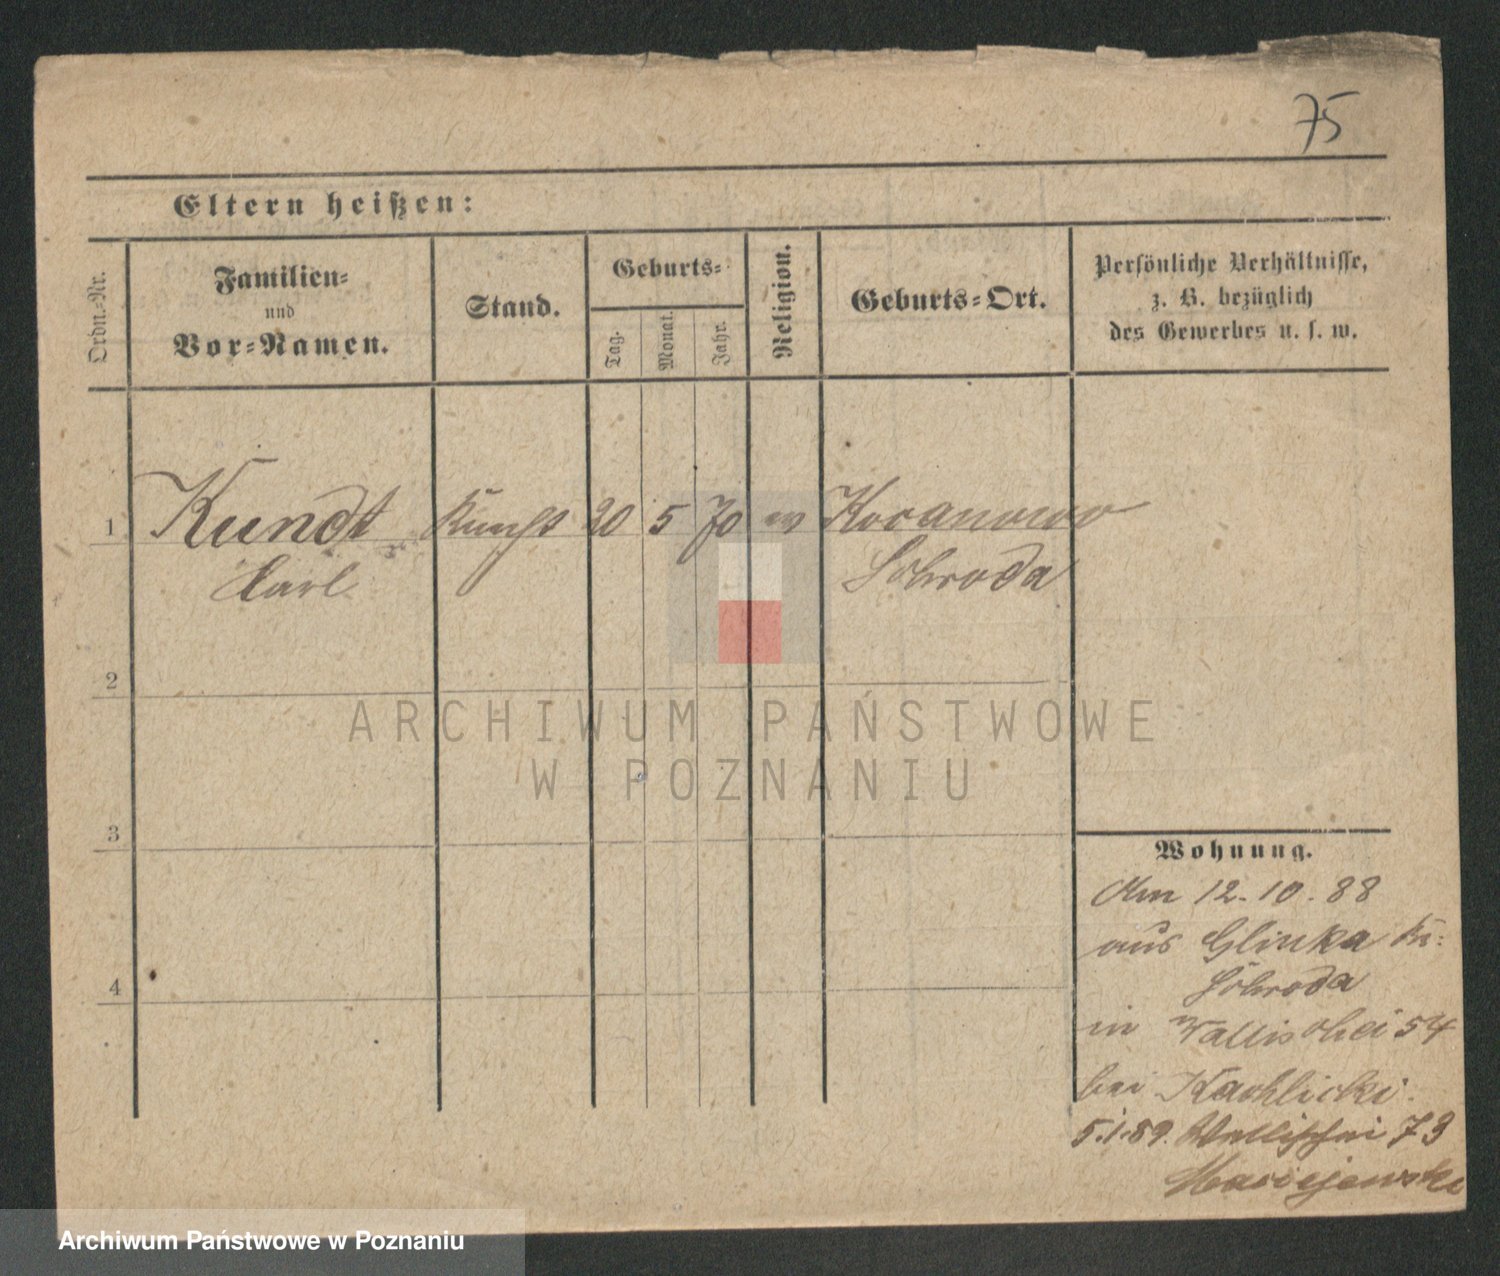 75
Eltern heißen:
Ordn.-Nr.
Familien-
und
Vor-Namen.
Stand.
Geburts-
Tag.
Monat.
Jahr.
Religion.
Geburts-Ort.
Persönliche Verhältnisse,
z. B. bezüglich
des Gewerbes u. s. w.
1 Kundt 20 5 70 ev
Carl Schroda
2
3
4
Wohnung.
Am 12.10.88
aus Glinka Kr:
Schroda
in Wallischei 54
bei Kachlicki.
5.1.89. Wallischei 73
Maciejewski
ARCHIWUM PAŃSTWOWE
W POZNANIU
Archiwum Państwowe w Poznaniu